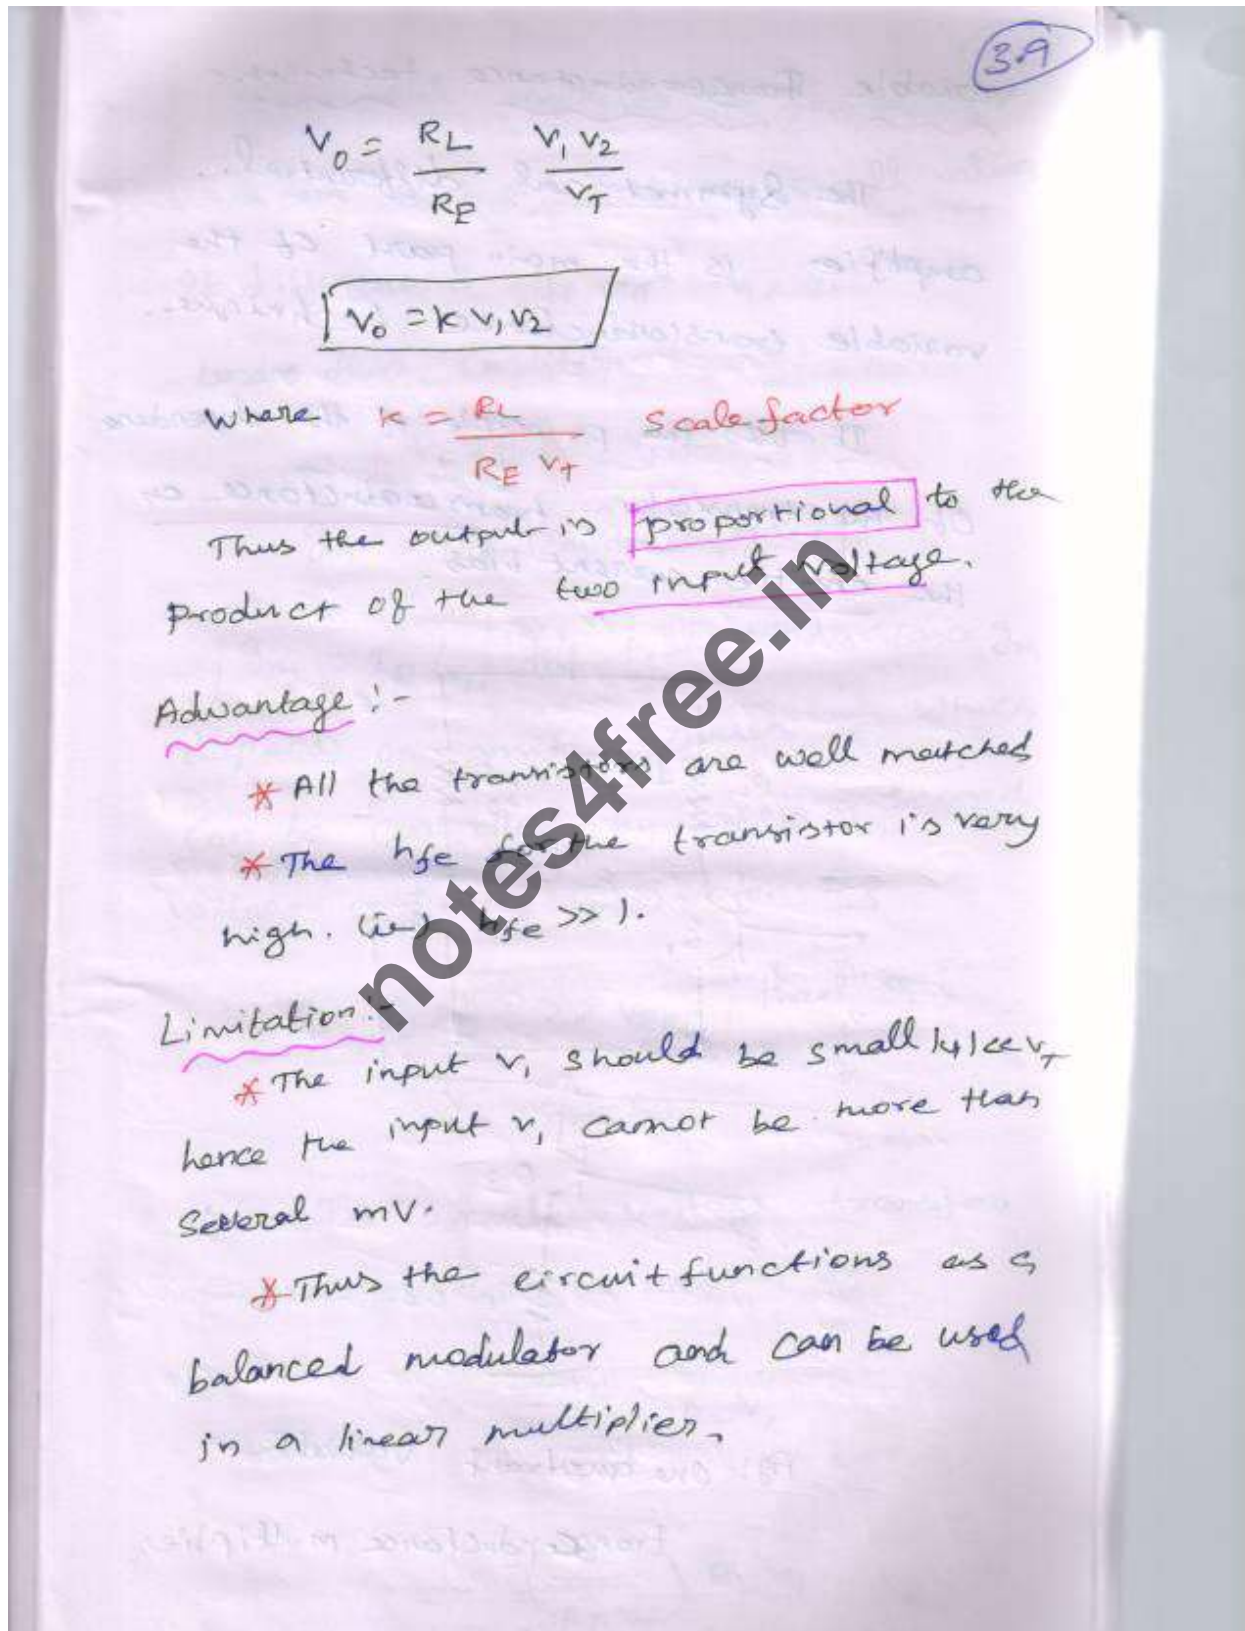 3.9
V₀ = R_L / R_E  V₁ V₂ / V_T
V₀ = K V₁ V₂
Where K = R_L / R_E V_T Scale factor
Thus the output is proportional to the
product of the two input voltage.
Advantage :-
* All the transistors are well matched
* The hfe for the transistor is very
high. (ie) hfe >> 1.
Limitation :-
* The input V₁ should be small |V₁| << V_T
hence the input V₁ cannot be more than
Several mV.
* Thus the circuit functions as a
balanced modulator and can be used
in a linear multiplier.
notes4free.in